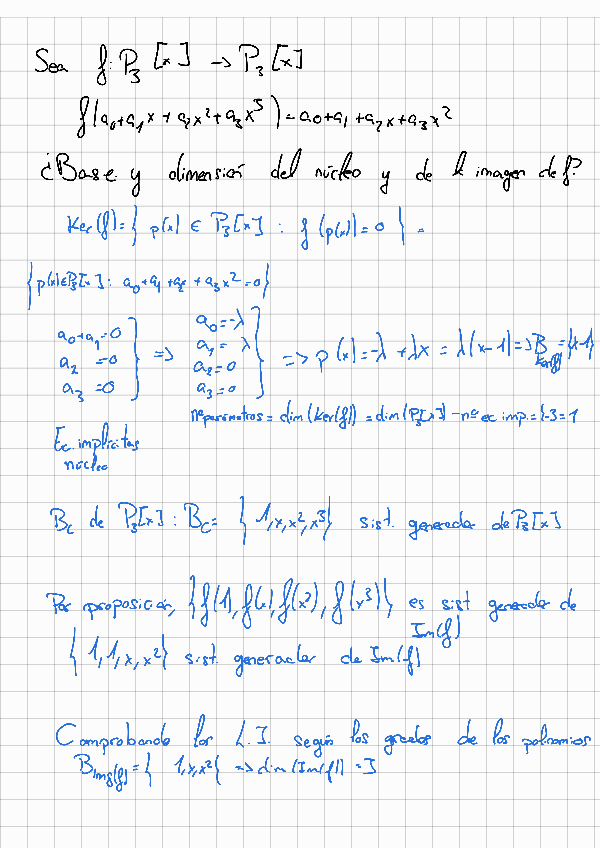 Sea f: P₃[x] → P₃[x]
f(a₀+a₁x + a₂x² + a₃x³) = a₀+a₁ + a₂x + a₃x²
¿Base y dimensión del núcleo y de la imagen de f?
Ker(f) = { p(x) ∈ P₃[x] : f(p(x)) = 0 } =
{ p(x) ∈ P₃[x] : a₀ + a₁ + a₂x + a₃x² = 0 }
a₀+a₁=0
a₂ =0
a₃ =0 } => a₀=-λ
a₁= λ
a₂=0
a₃=0 } => p(x)=-λ + λx = λ(x-1) => B Ker(f) = {x-1}
nº parámetros = dim(Ker(f)) = dim(P₃[x]) - nº ec imp. = 4-3 = 1
Ec. implícitas
núcleo
Bc de P₃[x] : Bc = { 1, x, x², x³ } sist. generador de P₃[x]
Por proposición, { f(1), f(x), f(x²), f(x³) } es sist generador de
Im(f)
{ 1, 1, x, x² } sist. generador de Im(f)
Comprobando los L.I. según los grados de los polinomios
B Img(f) = { 1, x, x² } => dim(Im(f)) = 3